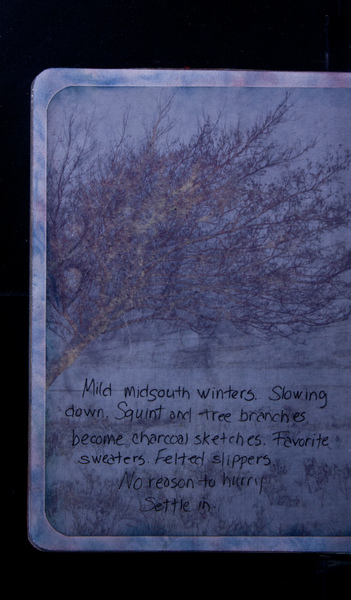 Mild midsouth winters. Slowing
down. Squint and tree branches
become charcoal sketches. Favorite
sweaters. Felted slippers.
No reason to hurry.
Settle in.